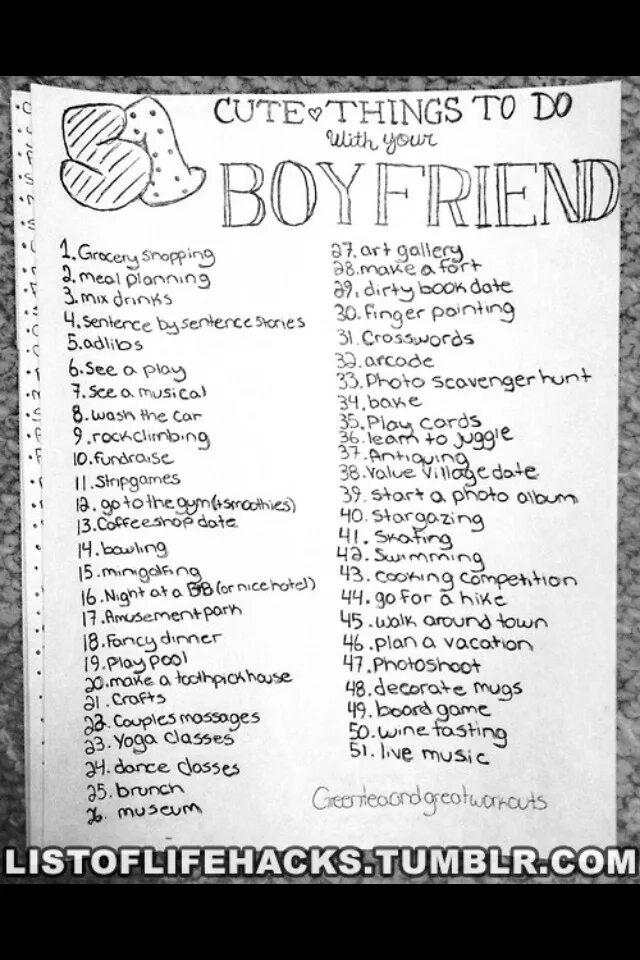 51
CUTE♡THINGS TO DO
With your
BOYFRIEND
1. Grocery shopping
2. meal planning
3. mix drinks
4. sentence by sentence stories
5. adlibs
6. See a play
7. See a musical
8. wash the car
9. rockclimbing
10. fundraise
11. Stripgames
12. go to the gym(+smoothies)
13. Coffeeshop date
14. bowling
15. minigolfing
16. Night at a BB (or nice hotel)
17. Amusement park
18. Fancy dinner
19. Play pool
20. make a toothpick house
21. Crafts
22. Couples massages
23. Yoga classes
24. dance classes
25. brunch
26. museum
27. art gallery
28. make a fort
29. dirty book date
30. Finger painting
31. Crosswords
32. arcade
33. Photo scavenger hunt
34. bake
35. Play cards
36. learn to juggle
37. Antiquing
38. Value Village date
39. Start a photo album
40. Stargazing
41. Skating
42. Swimming
43. cooking competition
44. go for a hike
45. walk around town
46. plan a vacation
47. Photoshoot
48. decorate mugs
49. board game
50. wine tasting
51. live music
Greenteaandgreatworkouts
LISTOFLIFEHACKS.TUMBLR.COM